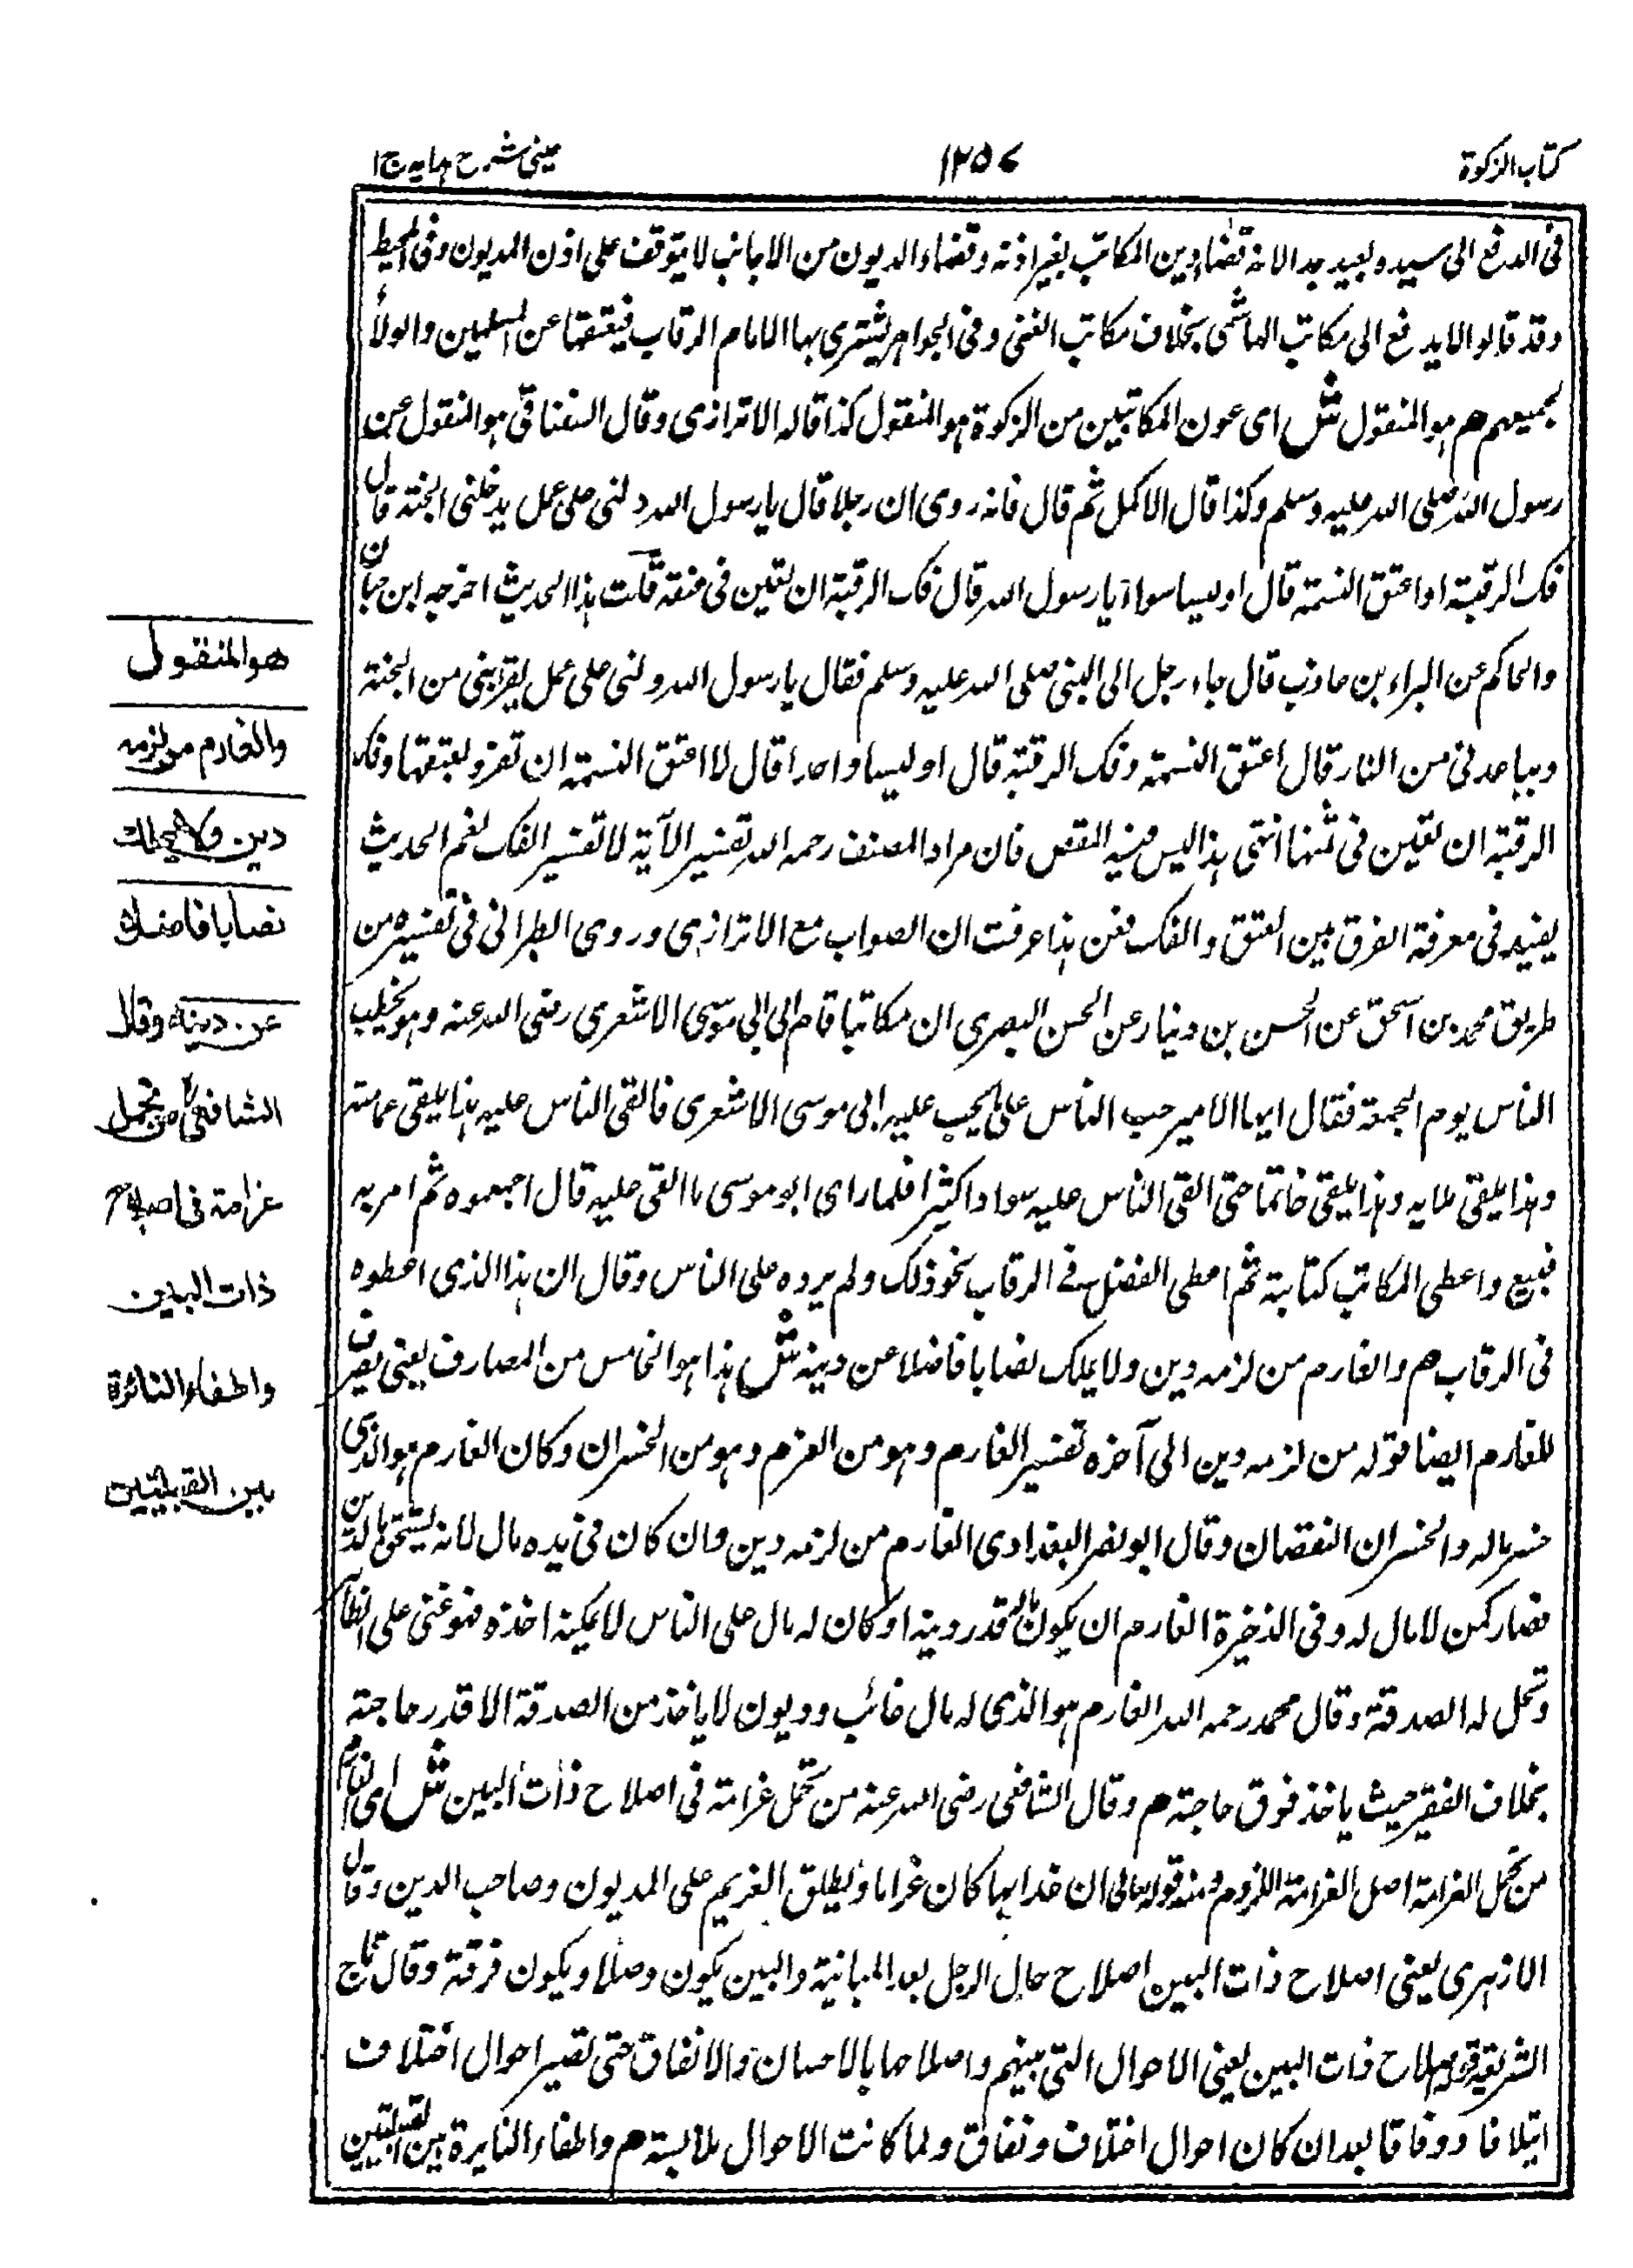 كتاب الزكوة
١٢٥٧
عيني شرح هدايه ج١
في الدفع الى سيده وبعيد جدا لانه قضاء دين المكاتب بغير اذنه وقضاء الديون من الاجانب لا يتوقف على اذن المديون وفي المحيط
وقد قالوا لا يدفع الى مكاتب الهاشمي بخلاف مكاتب الغني وفي الجواهر يشترى بها الامام الرقاب فيعتقها عن المسلمين والولاء
لجميعهم م هو المنقول ش اى عون المكاتبين من الزكوة هو المنقول كذا قاله الاترازى وقال السغناقى هو المنقول عن
رسول الله صلى الله عليه وسلم وكذا قال الاكمل ثم قال فانه روى ان رجلا قال يا رسول الله دلني على عمل يدخلني الجنة قال
فك الرقبة او اعتق النسمة قال اوليسا سواء يا رسول الله قال فك الرقبة ان تعين في عتقه قلت هذا الحديث اخرجه ابن حبان
والحاكم عن البراء بن عازب قال جاء رجل الى النبي صلى الله عليه وسلم فقال يا رسول الله دلني على عمل يقربني من الجنة
ويباعدني من النار قال اعتق النسمة وفك الرقبة قال اوليسا واحدا قال لا اعتق النسمة ان تفرد بعتقها وفك
الرقبة ان تعين في ثمنها انتهى هذا ليس فيه المقص فان مراد المصنف رحمه الله تفسير الآية لا تفسير الفك نعم الحديث
يفيد في معرفة الفرق بين العتق والفك فمن هذا عرفت ان الصواب مع الاترازى وروى الطبراني في تفسيره من
طريق محمد بن اسحق عن الحسن بن دينار عن الحسن البصرى ان مكاتبا قام الى ابي موسى الاشعرى رضى الله عنه وهو يخطب
الناس يوم الجمعة فقال ايها الامير حث الناس على فحث عليه ابى موسى الاشعرى فالقى الناس عليه هذا يلقى عمامة
وهذا يلقى ملاية وهذا يلقى خاتما حتى القى الناس عليه سوادا كثيرا فلما راى ابو موسى ما القى عليه قال اجمعوه ثم امر به
فبيع واعطى المكاتب كتابته ثم اعطى الفضل في الرقاب نحو ذلك ولم يرده على الناس وقال ان هذا الذى اعطوه
في الرقاب م والغارم من لزمه دين ولا يملك نصابا فاضلا عن دينه ش هذا هو الخامس من المصارف يعني يصرف
للغارم ايضا قوله من لزمه دين الى آخره تفسير الغارم وهو من الغرم وهو من الخسران وكان الغارم هو الذى
خسر ماله والخسران النقصان وقال ابو نصر البغدادى الغارم من لزمه دين وان كان في يده مال لانه يستحق بالدين
فصار كمن لا مال له وفي الذخيرة الغارم ان يكون بقدر دينه او كان له مال على الناس لا يمكنه اخذه فهو غنى على الظاهر
وتحل له الصدقة وقال محمد رحمه الله الغارم هو الذى له مال غائب وديون لا ياخذ من الصدقة الا قدر حاجته
بخلاف الفقير حيث ياخذ فوق حاجته م وقال الشافعى رضى الله عنه من تحمل غرامة في اصلاح ذات البين ش اى الغارم
من تحمل الغرامة اصل الغرامة اللزوم ومنه قوله تعالى ان عذابها كان غراما ويطلق الغريم على المديون وصاحب الدين وقال
الازهرى يعني اصلاح ذات البين اصلاح حال الرجل بعد المباينة والبين يكون وصلا ويكون فرقة وقال تاج
الشريعة قوله اصلاح ذات البين يعني الاحوال التي بينهم واصلاحها بالاحسان والانفاق حتى تصير احوال اختلاف
ايتلافا ووفاقا بعد ان كان احوال اختلاف ونفاق ولما كانت الاحوال ملابسة م واطفاء النايرة بين القبيلتين
هو المنقول
والغارم من لزمه
دين ولا يملك
نصابا فاضلا
عن دينه وقال
الشافعي من تحمل
غرامة في اصلاح
ذات البين
واطفاء النائرة
بين القبيلتين